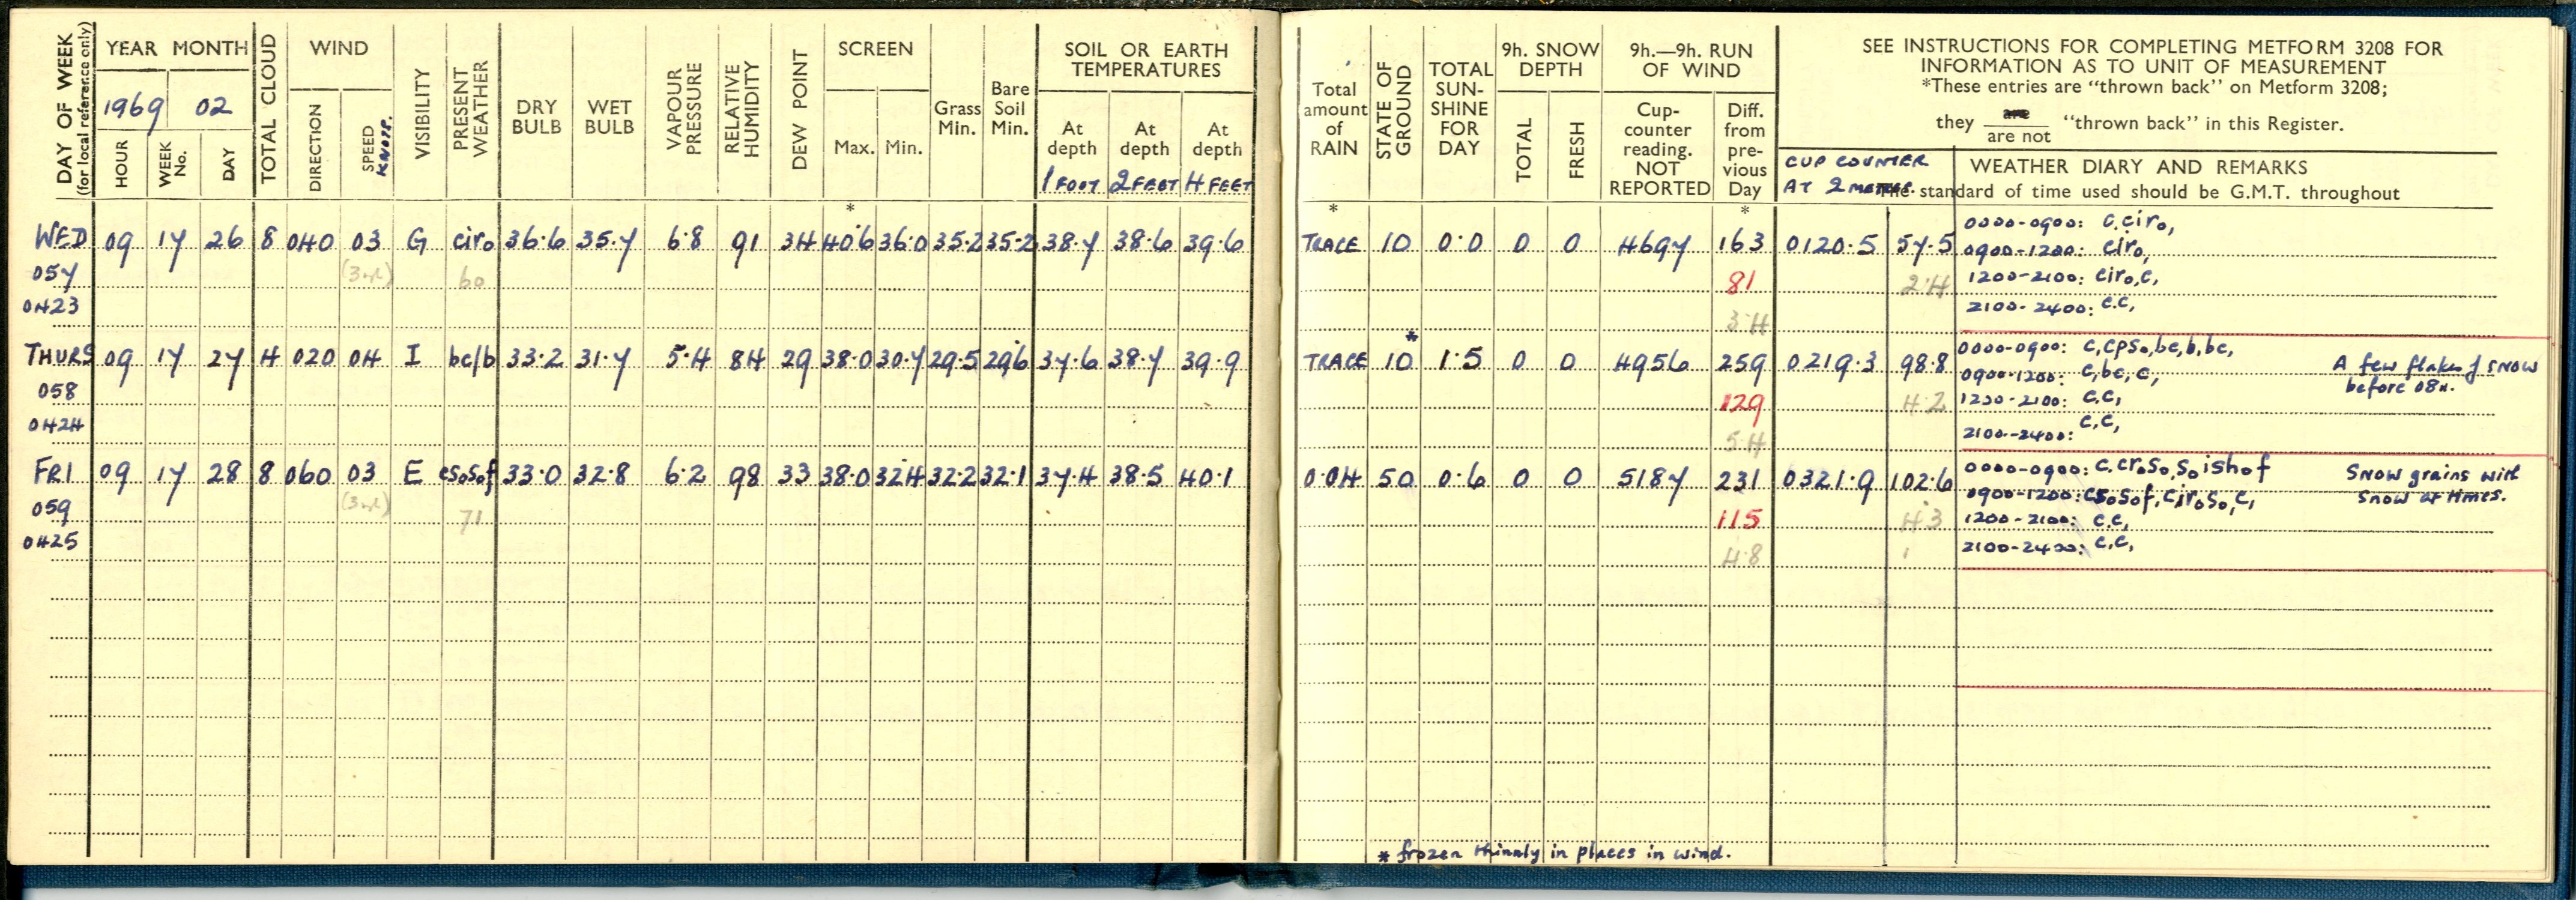 DAY OF WEEK
(for local reference only)
YEAR MONTH
1969 02
HOUR
WEEK No.
DAY
TOTAL CLOUD
WIND
DIRECTION
SPEED KNOTS.
VISIBILITY
PRESENT WEATHER
DRY BULB
WET BULB
VAPOUR PRESSURE
RELATIVE HUMIDITY
DEW POINT
SCREEN
Max. Min.
Grass Min.
Bare Soil Min.
SOIL OR EARTH
TEMPERATURES
At depth At depth At depth
1 FOOT 2 FEET 4 FEET
*
WED 09 17 26 8 040 03 G cir₀ 36.6 35.7 6.8 91 34 40.6 36.0 35.2 35.2 38.7 38.6 39.6
057 60
0423
THURS 09 17 27 4 020 04 I bc/b 33.2 31.7 5.4 84 29 38.0 30.7 29.5 29.6 37.6 38.7 39.9
058
0424
FRI 09 17 28 8 060 03 E cs₀s₀f 33.0 32.8 6.2 98 33 38.0 32.4 32.2 32.1 37.4 38.5 40.1
059 71
0425
Total amount of RAIN
STATE OF GROUND
TOTAL SUN-SHINE FOR DAY
9h. SNOW DEPTH
TOTAL FRESH
9h.—9h. RUN OF WIND
Cup-counter reading. NOT REPORTED
Diff. from pre-vious Day
SEE INSTRUCTIONS FOR COMPLETING METFORM 3208 FOR
INFORMATION AS TO UNIT OF MEASUREMENT
*These entries are "thrown back" on Metform 3208;
they are "thrown back" in this Register.
are not
CUP COUNTER
AT 2 METRES.
WEATHER DIARY AND REMARKS
The standard of time used should be G.M.T. throughout
* *
TRACE 10 0.0 0 0 4697 163 0120.5 57.5
81 2.4
3.4
0000-0900: c.cir₀,
0900-1200: cir₀,
1200-2100: cir₀,c,
2100-2400: c.c,
*
TRACE 10 1.5 0 0 4956 259 0219.3 98.8
129 4.2
5.4
0000-0900: c,cps₀,bc,b,bc,
0900-1200: c,bc,c,
1200-2100: c.c,
2100-2400: c,c,
A few flakes of snow
before 08h.
0.04 50 0.6 0 0 5187 231 0321.9 102.6
115 4.3
4.8
0000-0900: c.cr₀s₀,s₀ishof
0900-1200: cs₀s₀f,cir₀s₀,c,
1200-2100: c.c,
2100-2400: c,c,
Snow grains with
snow at times.
* frozen thinnly in places in wind.